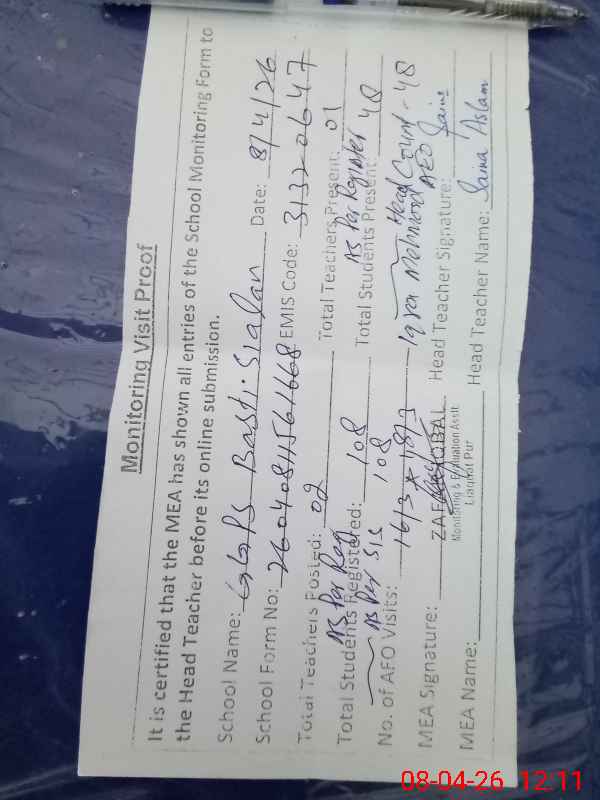 Monitoring Visit Proof
It is certified that the MEA has shown all entries of the School Monitoring Form to
the Head Teacher before its online submission.
School Name: GGPS Basti Sialan Date: 8/4/26
School Form No: EMIS Code: 31320647
Total Teachers Posted: 02 Total Teachers Present: 01
As per Reg As per Register
Total Students Registered: 108 Total Students Present: 48
As per SIS 108 Head Count - 48
No. of AEO Visits: Iqra Mehmood AEO
MEA Signature: Head Teacher Signature: Saima
ZAFAR IQBAL
Monitoring & Evaluation Asstt
Liaquat Pur
MEA Name: Head Teacher Name: Saima Aslam
08-04-26 12:11